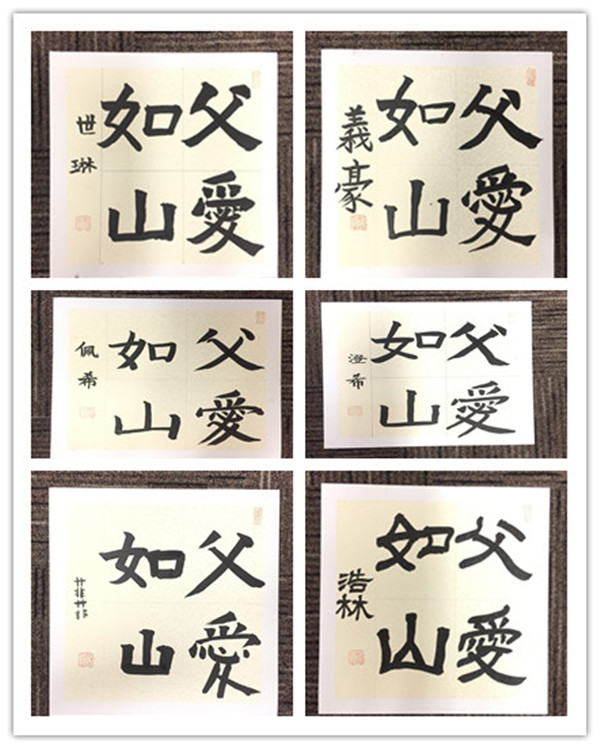 父愛
如山
世琳
父愛
如山
義豪
父愛
如山
佩希
父愛
如山
澄希
父愛
如山
菲菲
父愛
如山
浩林